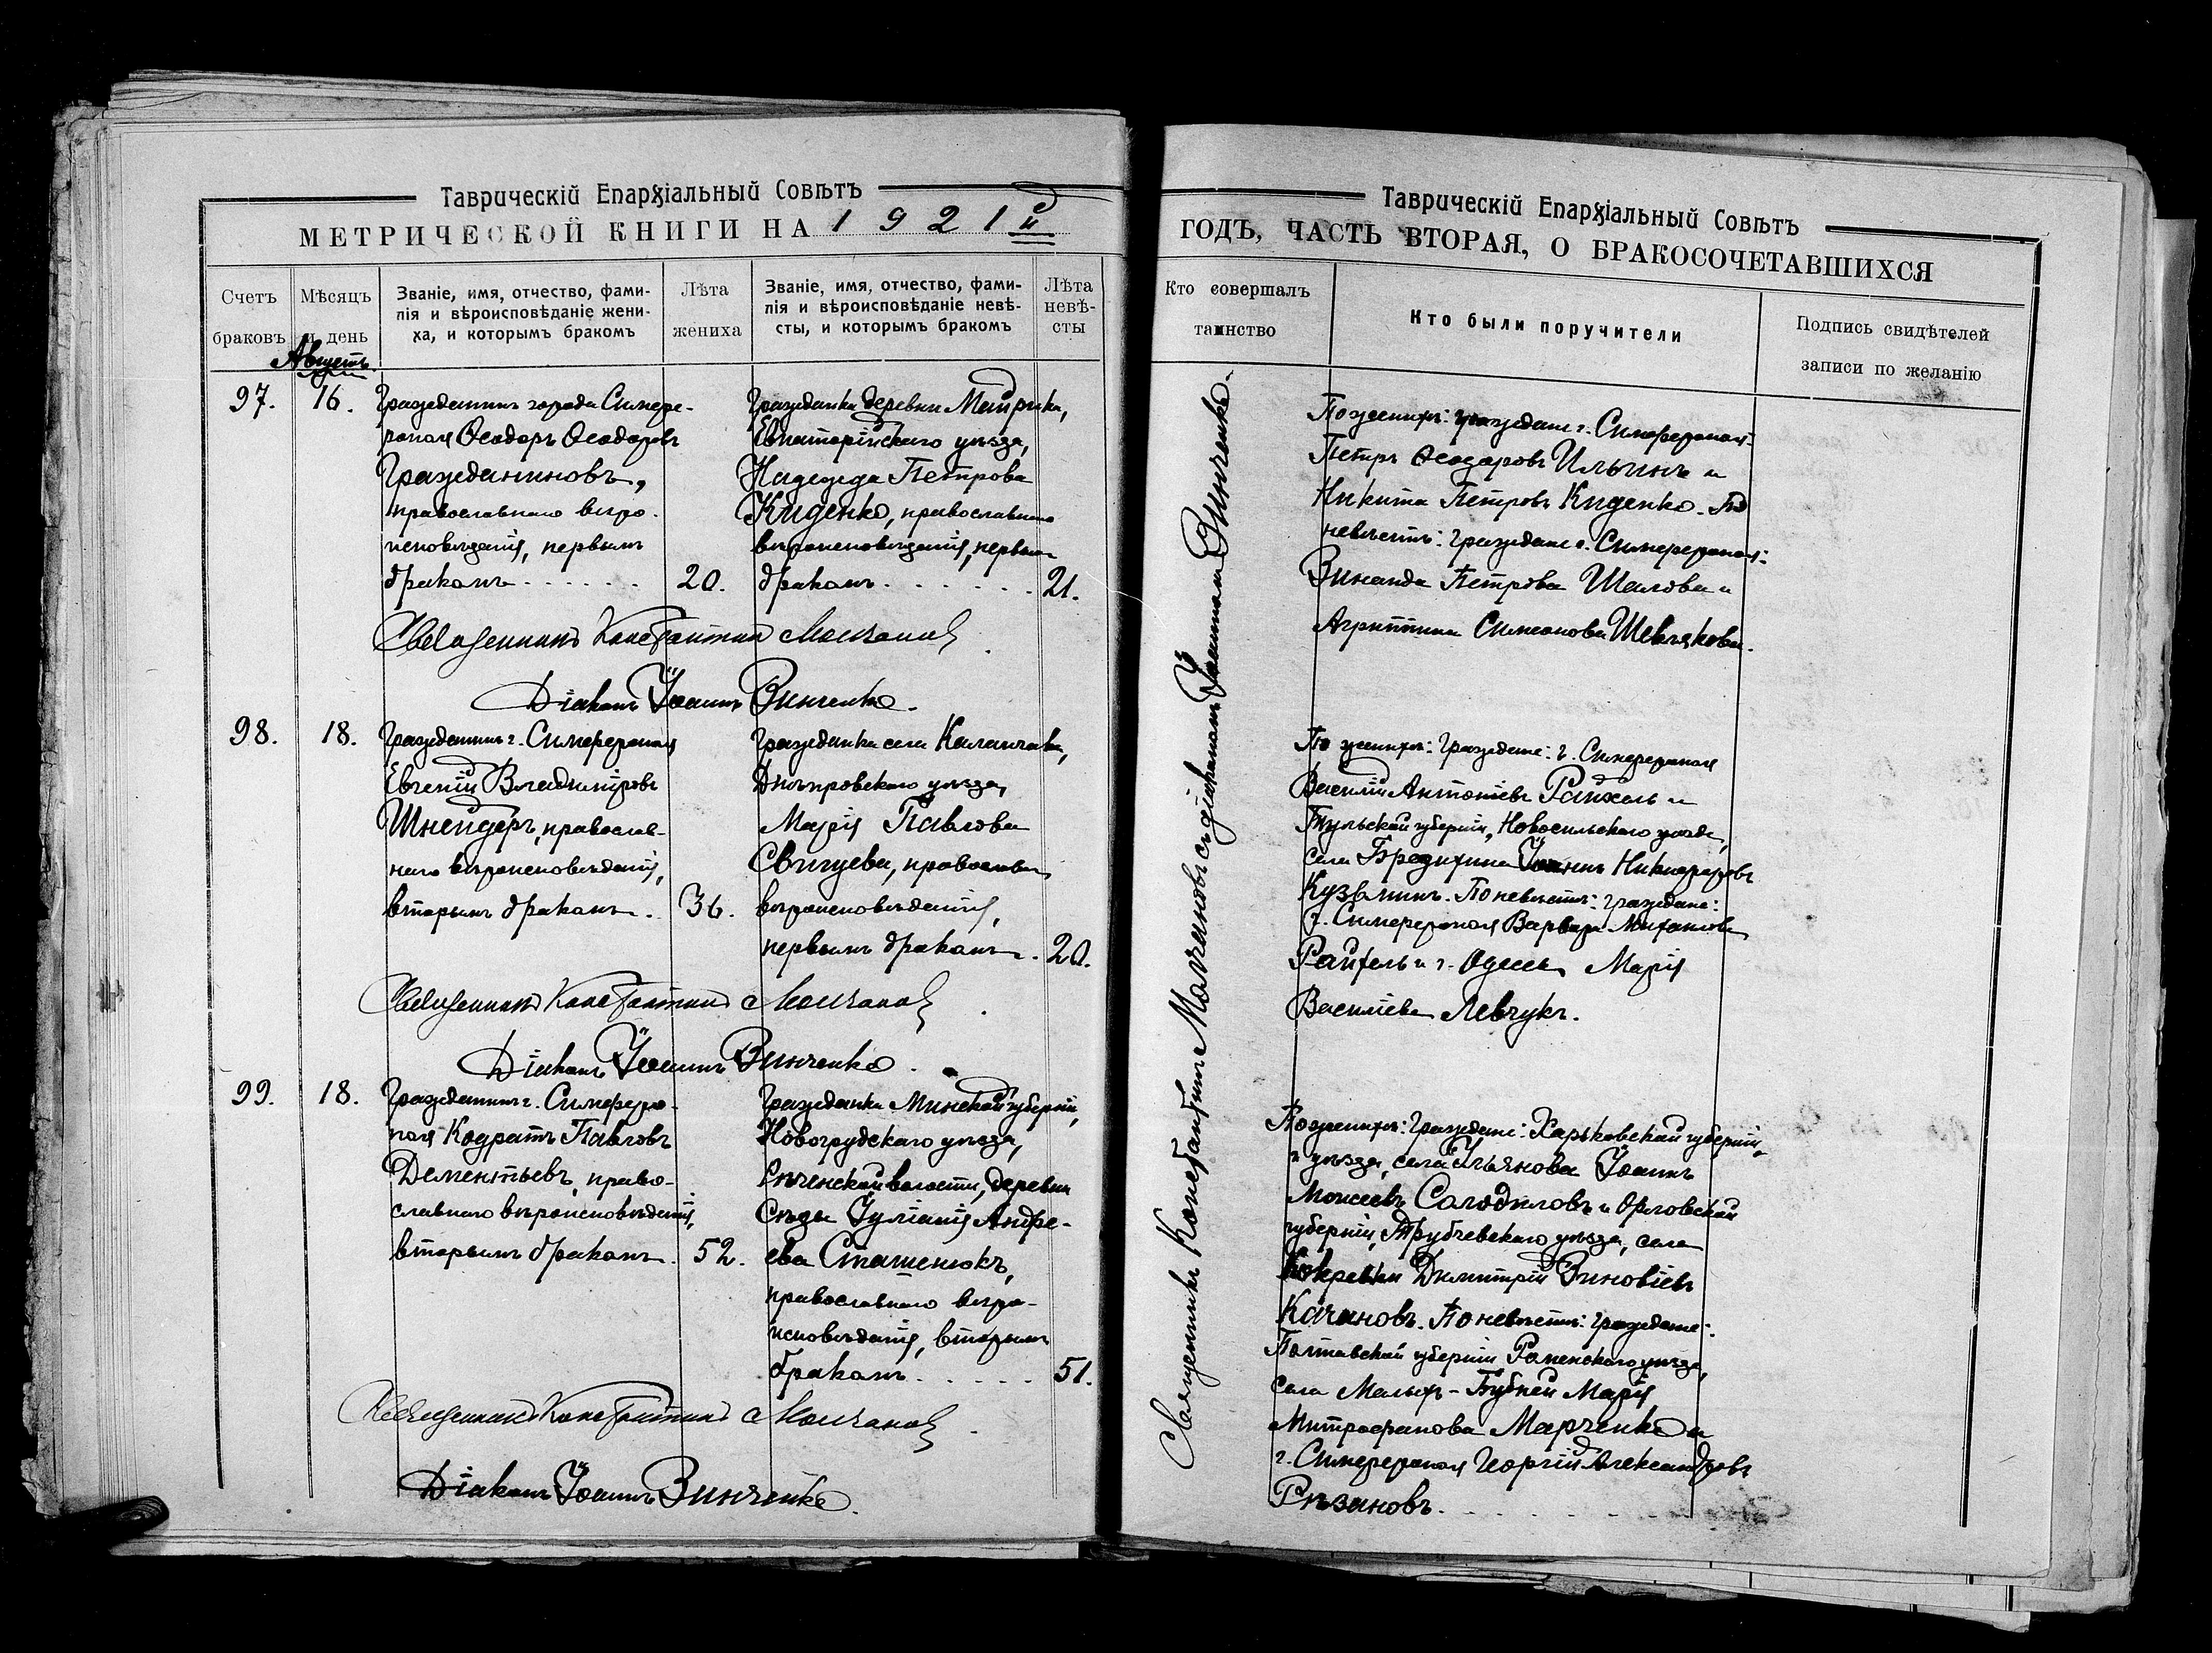 Таврическій Епархіальный Совѣтъ
МЕТРИЧЕСКОЙ КНИГИ НА 1921 й
Счетъ браковъ
Мѣсяцъ и день
Званіе, имя, отчество, фами-
лія и вѣроисповѣданіе жени-
ха, и которымъ бракомъ
Лѣта жениха
Званіе, имя, отчество, фами-
лія и вѣроисповѣданіе невѣ-
сты, и которымъ бракомъ
Лѣта невѣ-
сты
Августъ
97.
16.
Гражданинъ города Симфе-
рополя Ѳеодоръ Ѳеодоровъ
Гражданиновъ,
православнаго вѣро-
исповѣданія, первымъ
бракомъ
20.
Гражданка деревни
Евпаторійскаго уѣзда,
Надежда Петрова
Киденко, православнаго
вѣроисповѣданія, первымъ
бракомъ
21.
Священникъ Константинъ Молчановъ
Діаконъ Іоаннъ Зинченко.
98.
18.
Гражданинъ г. Симферополя
Евгеній Владиміровъ
Шнейдеръ, православ-
наго вѣроисповѣданія,
вторымъ бракомъ.
36.
Гражданка села Каланчака,
Днѣпровскаго уѣзда,
Марія Павлова
православнаго
вѣроисповѣданія,
первымъ бракомъ.
20.
Священникъ Константинъ Молчановъ
Діаконъ Іоаннъ Зинченко.
99.
18.
Гражданинъ г. Симферо-
поля Кодратъ Павловъ
Дементьевъ, право-
славнаго вѣроисповѣданія,
вторымъ бракомъ.
52.
Гражданка Минской губерніи,
Новогрудскаго уѣзда,
волости, деревни
Іуліанія Андре-
ева Сташенюкъ,
православнаго вѣро-
исповѣданія, вторымъ
бракомъ
51.
Священникъ Константинъ Молчановъ
Діаконъ Іоаннъ Зинченко.
Таврическій Епархіальный Совѣтъ
ГОДЪ, ЧАСТЬ ВТОРАЯ, О БРАКОСОЧЕТАВШИХСЯ
Кто совершалъ таинство
Кто были поручители
Подпись свидѣтелей
записи по желанію
Священникъ Константинъ Молчановъ съ діакономъ Іоанномъ Зинченко.
По женихѣ: граждане г. Симферополя:
Петръ Ѳеодоровъ Ильинъ и
Никита Петровъ Киденко. По
невѣстѣ: граждане г. Симферополя:
Зинаида Петрова Шалова и
Агриппина Симеонова Шевлякова.
По женихѣ: Граждане: г. Симферополя
Василій Антоніевъ Райхель и
Тульской губерніи, Новосильскаго уѣзда,
села Іоаннъ Никифоровъ
Кузьминъ. По невѣстѣ: граждане:
г. Симферополя Варвара Михайлова
Райхель и г. Одессы Марія
Василіева Левчукъ.
По женихѣ: Граждане: Харьковской губерніи
и уѣзда, села Ульянова Іоаннъ
Моисеевъ Солодиловъ и Орловской
губерніи, Трубчевскаго уѣзда, села
Димитрій Зиновіевъ
Качановъ. По невѣстѣ: граждане:
Полтавской губерніи Роменскаго уѣзда,
села Малыхъ-Бубней Марія
Митрофанова Марченко и
г. Симферополя Георгій Александровъ
Рѣзановъ.